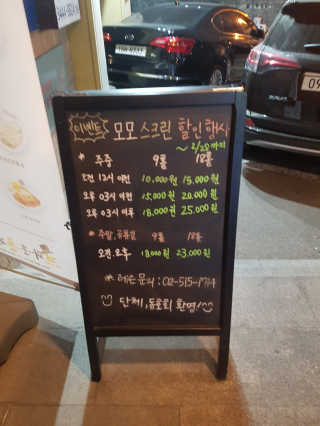 이벤트 모모스크린 할인행사
~ 2/28까지
* 주중 9홀 18홀
오전 12시 이전 10,000원 15,000원
오후 03시 이전 15,000원 20,000원
오후 03시 이후 18,000원 25,000원
* 주말, 공휴일 9홀 18홀
오전.오후 18,000원 23,000원
* 레슨문의 : 02-515-1714
단체, 동호회 환영!